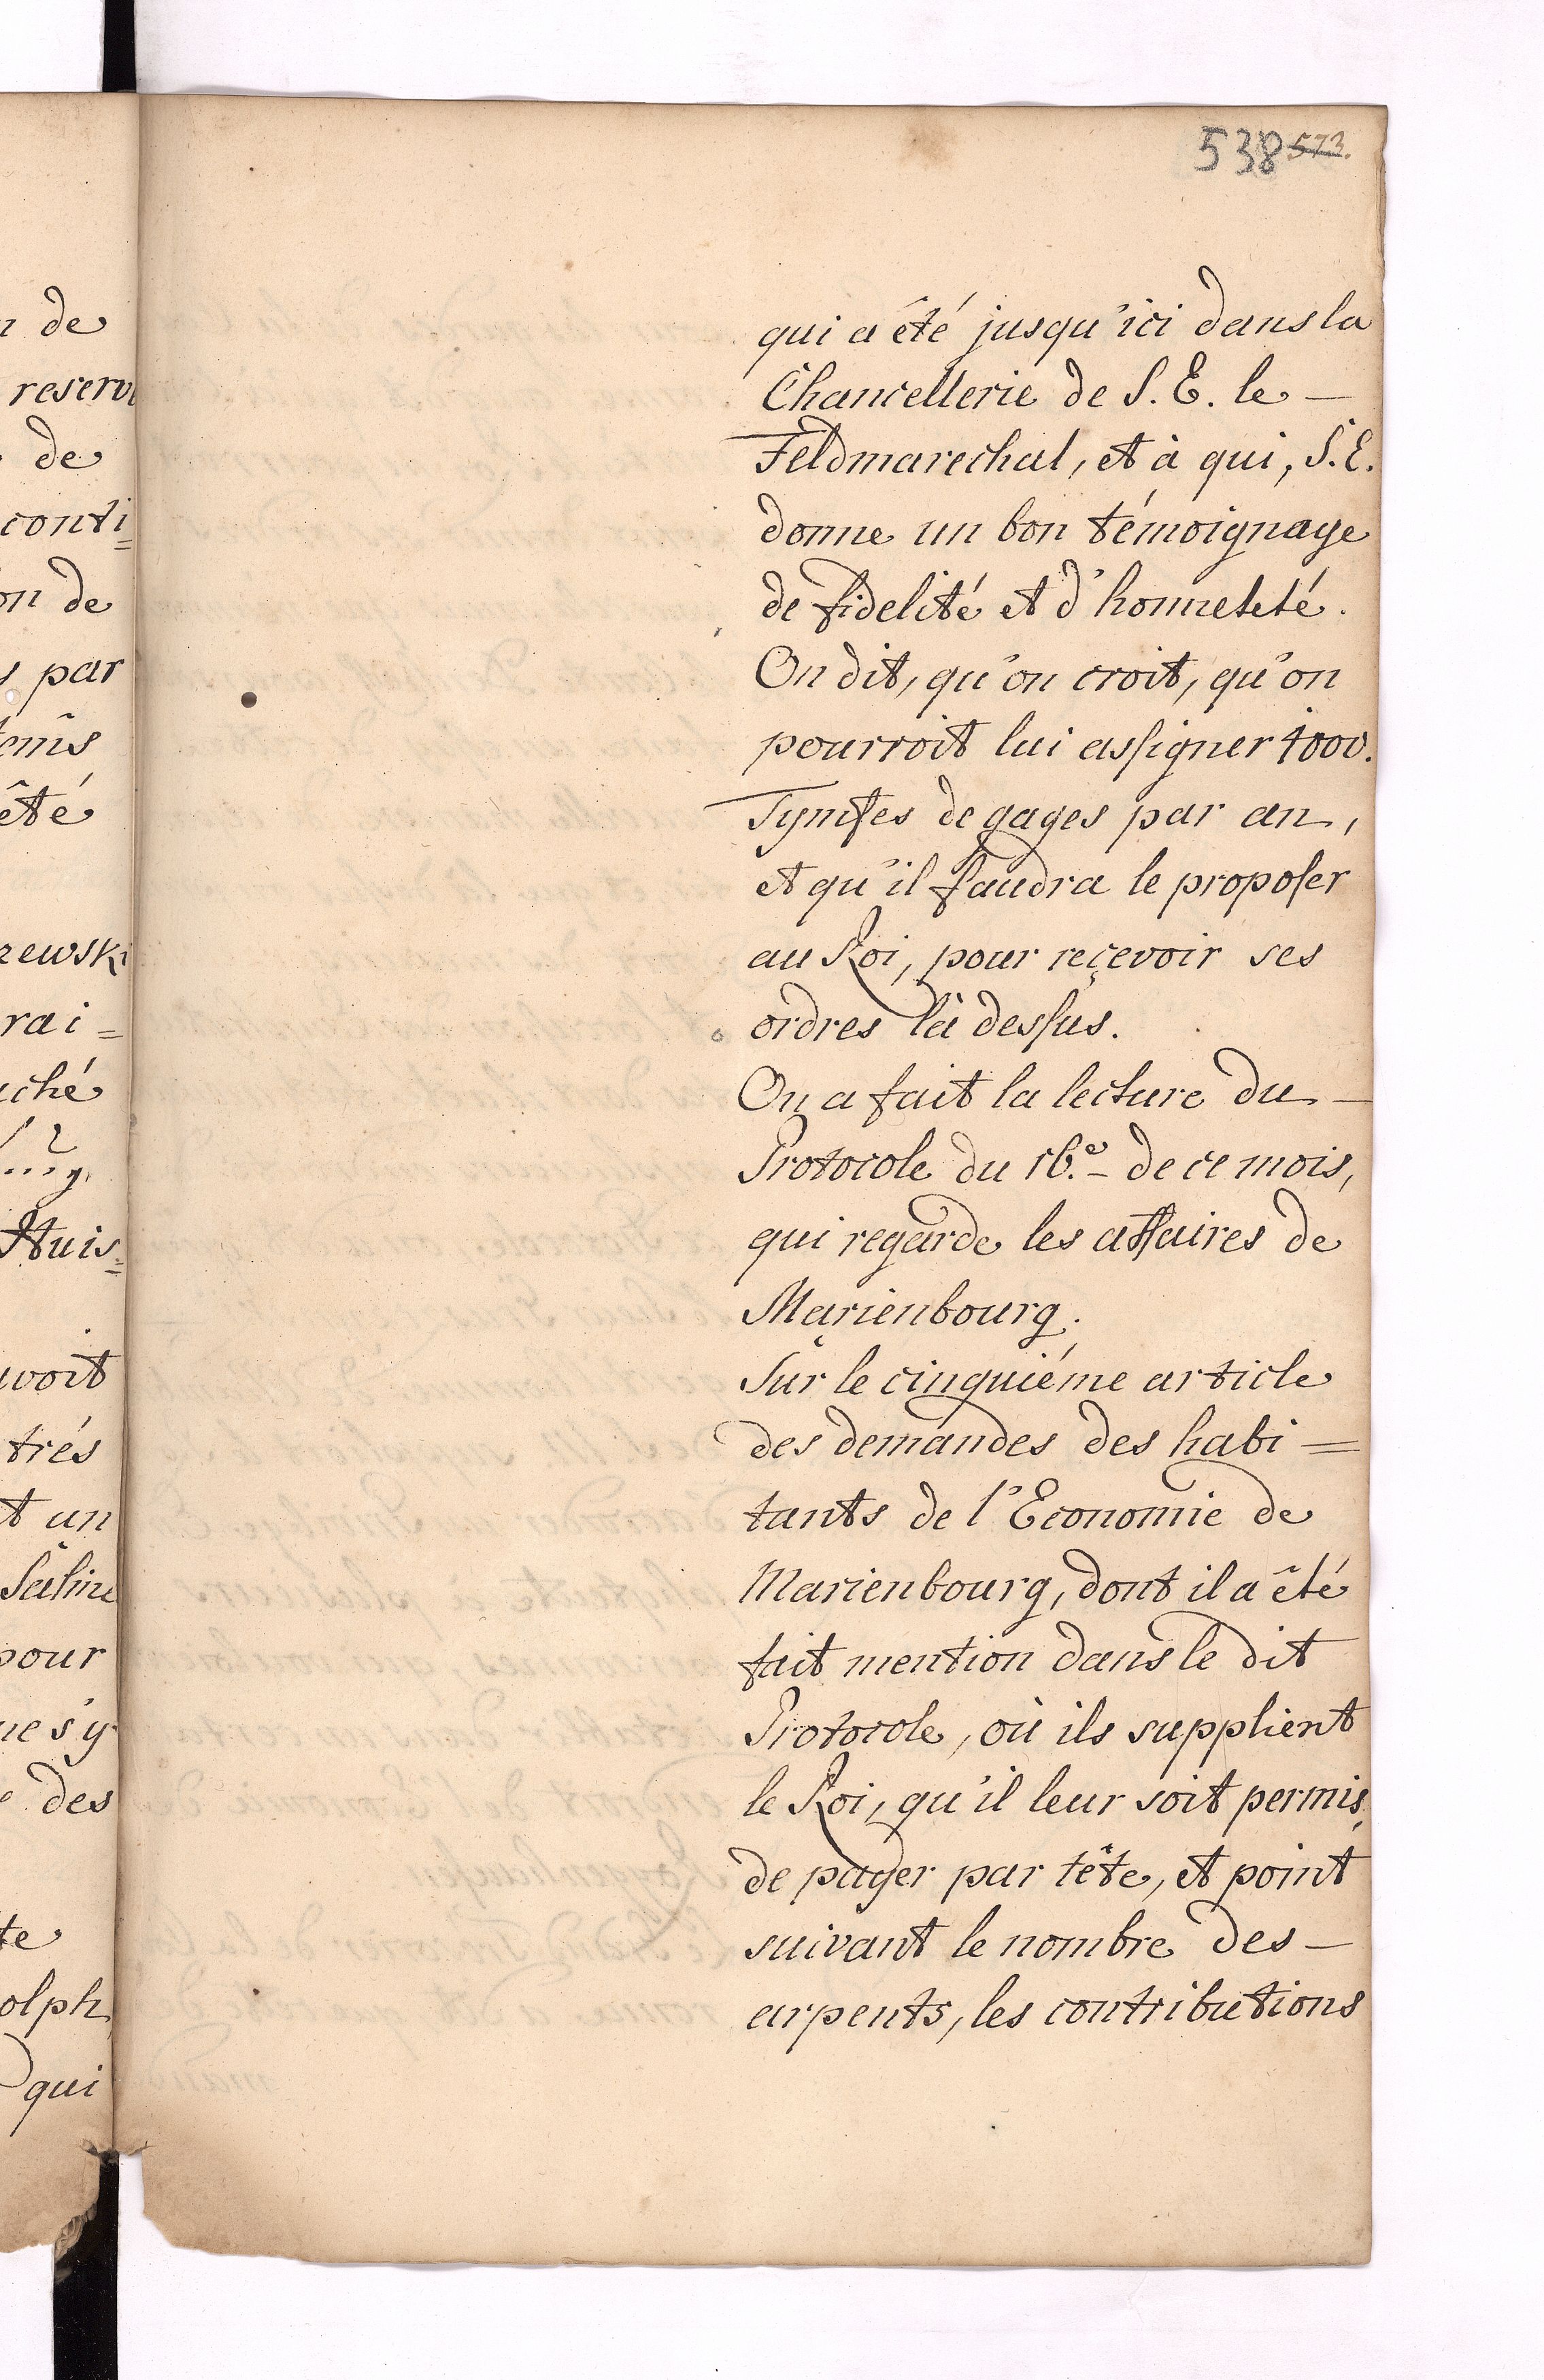 538 573.
qui a êté jusqu'ici dans la
Chancellerie de S. E. le —
Feldmarechal, et à qui, S. E.
donne un bon témoignage
de fidelité et d'honneteté.
On dit, qu'on croit, qu'on
pourroit lui assigner 1000.
Tymfes de gages par an,
et qu'il faudra le proposer
au Roi, pour reçevoir ses
ordres là dessus.
On a fait la lecture du —
Protocole du 16.e de ce mois,
qui regarde les affaires de
Marienbourg.
Sur le cinquiéme article
des demandes des habi=
tants de l'Economie de
Marienbourg, dont il a êté
fait mention dans le dit
Protocole, où ils supplient
le Roi, qu'il leur soit permis,
de payer par tête, et point
suivant le nombre des —
arpents, les contributions
de
reserv
de
conti=
on de
par
êté
rai=
uché
Huis=
avoit
trés
un
Saline
pour
ne s'y
des
te
olph
qui